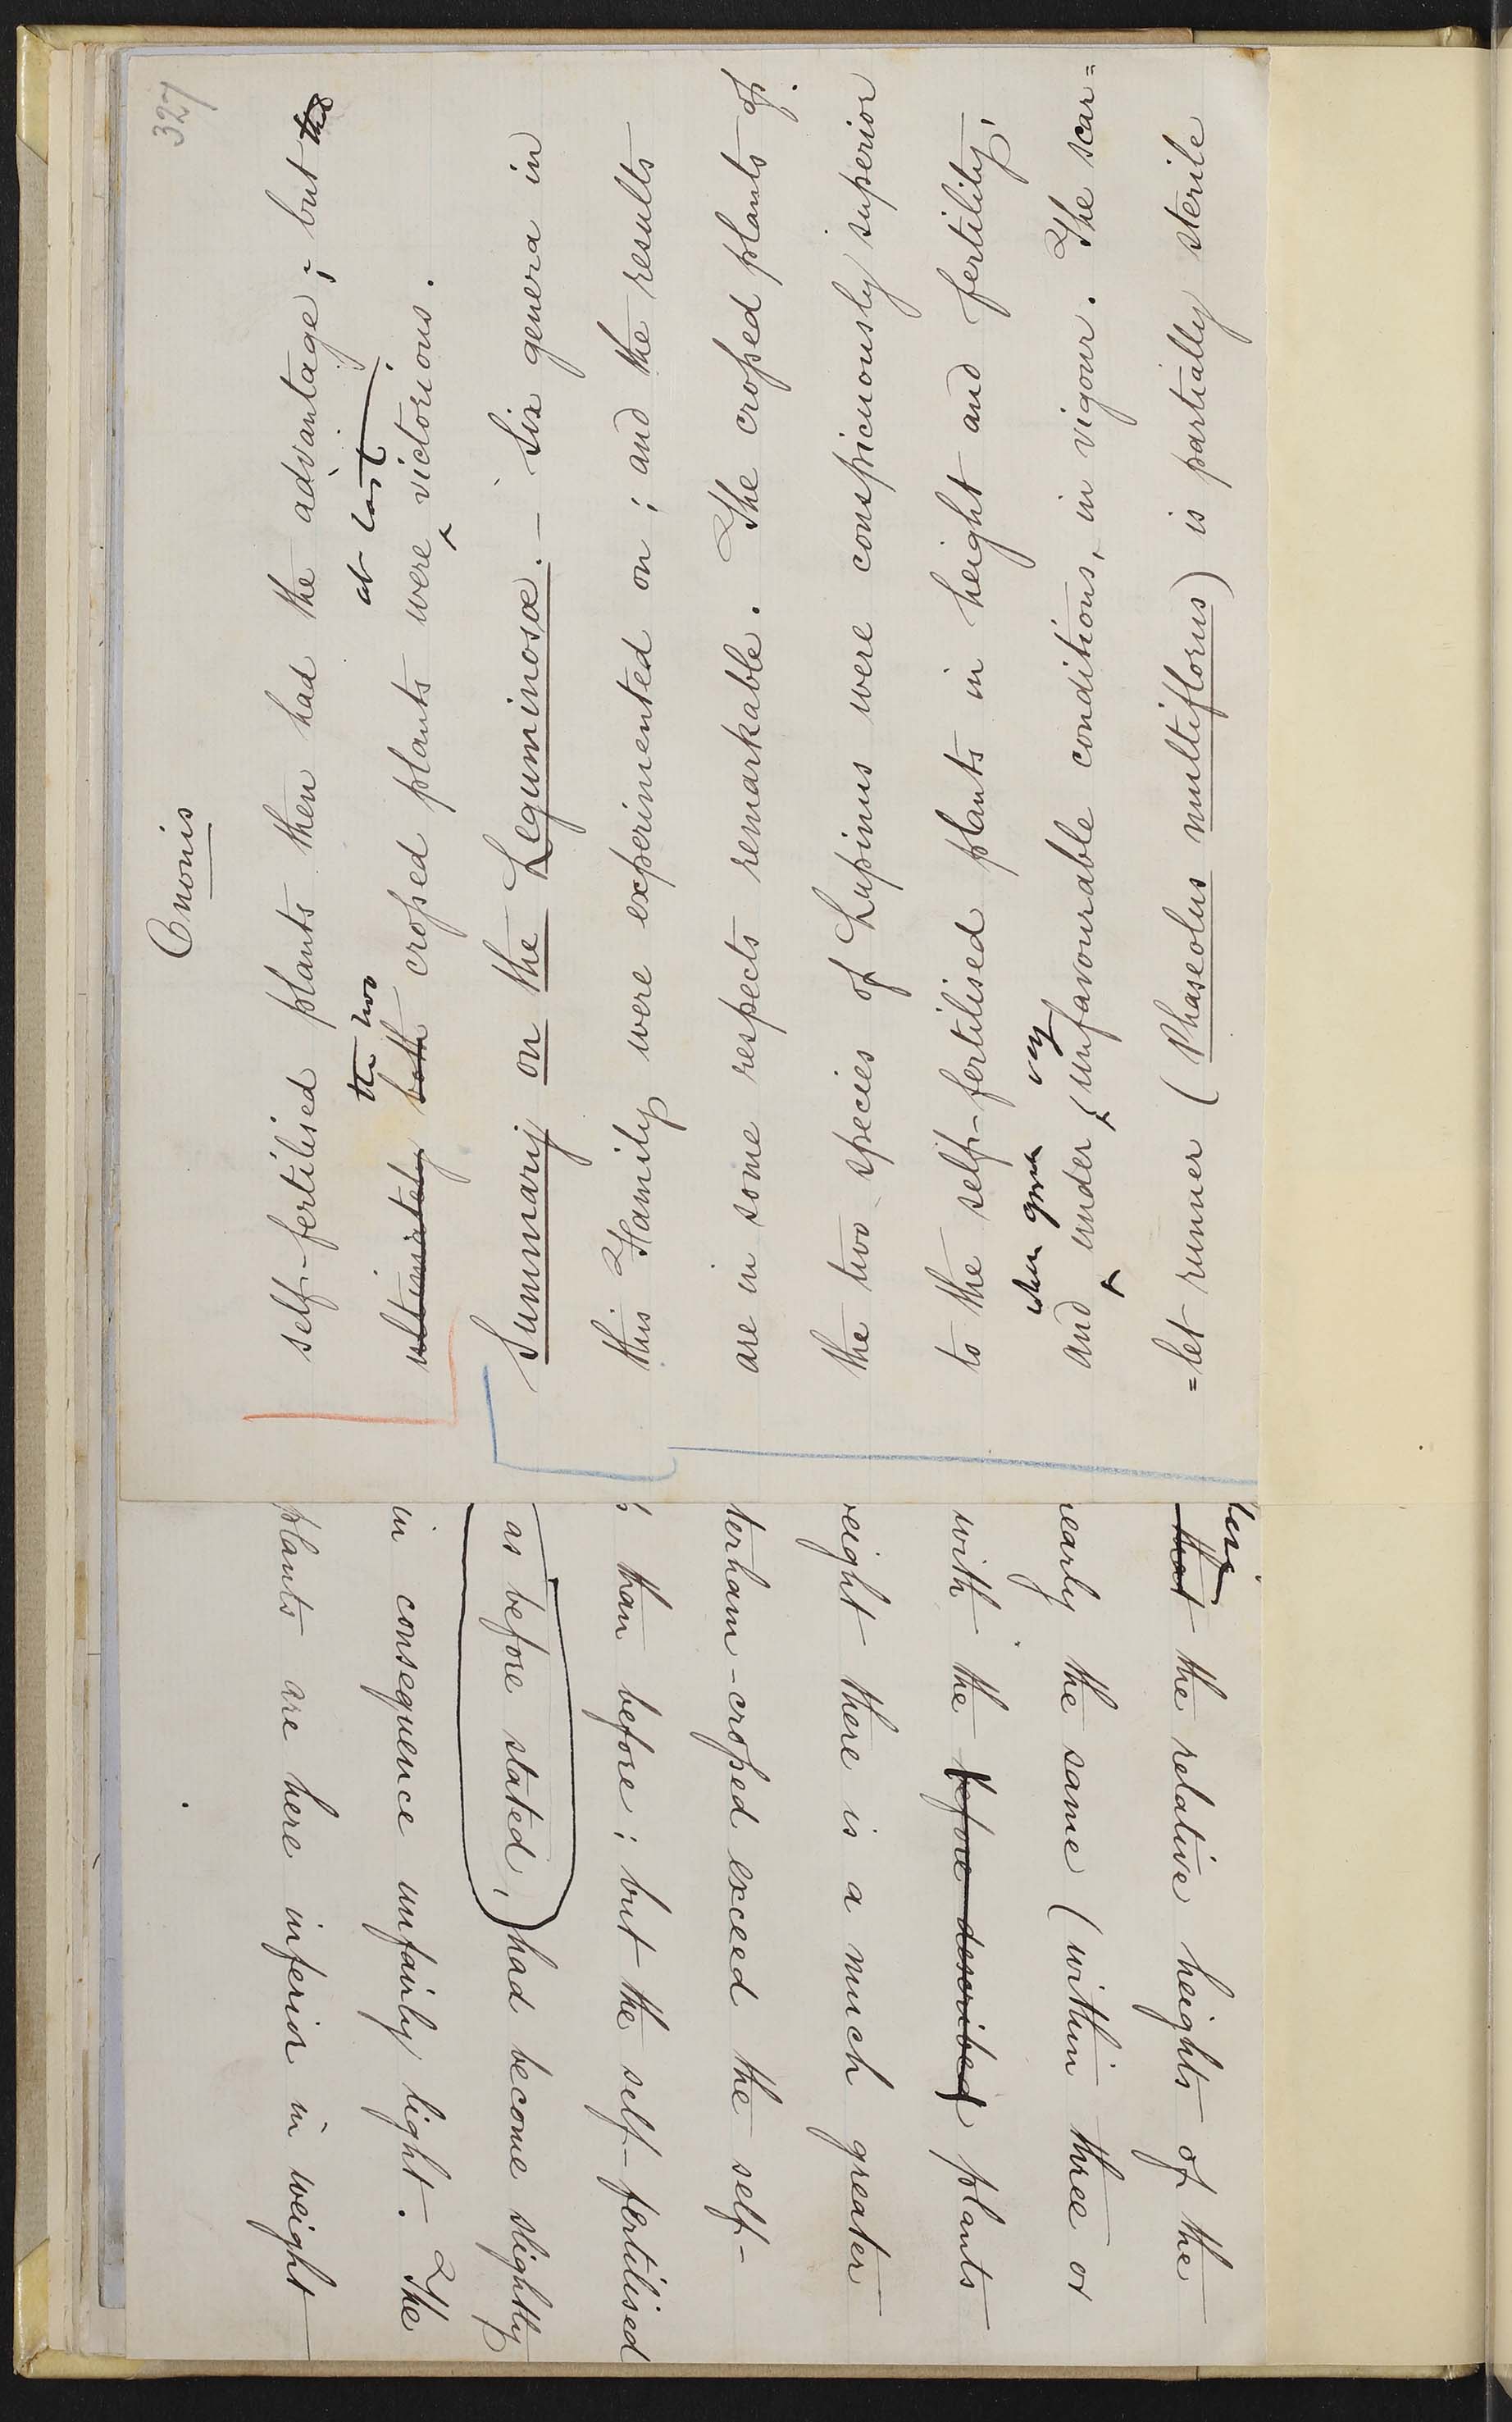 327
Ononis
self-fertilised plants then had the advantage; but the
the two at last
ultimately both crossed plants were victorious.
Summary on the Leguminosæ. — Six genera in
this Family were experimented on; and the results
are in some respects remarkable. The crossed plants of
the two species of Lupinus were conspicuously superior
to the self-fertilised plants in height and fertility;
when grown very
and under unfavourable conditions, in vigour. The scar=
=let runner (Phaseolus multiflorus) is partially sterile
that the relative heights of the
nearly the same (within three or
with the before described plants
weight there is a much greater
terham-crossed exceed the self-
than before; but the self-fertilised
as before stated, had become slightly
in consequence unfairly light. The
plants are here inferior in weight